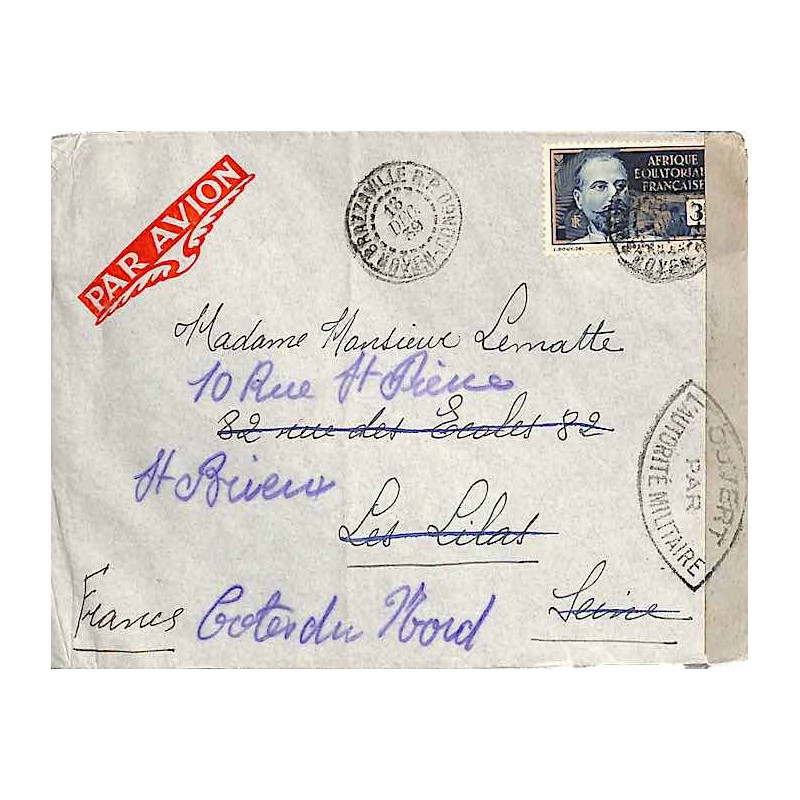 PAR AVION
BRAZZAVILLE R.P.
MOYEN-CONGO
18
DEC
39
AFRIQUE
EQUATORIALE
FRANÇAISE
3
MOYEN
Madame Monsieur Lematte
10 Rue St Pierre
82 rue des Ecoles 82
St Brieux
Les Lilas
France
Cotes du Nord
Seine
OUVERT
PAR
L'AUTORITÉ MILITAIRE